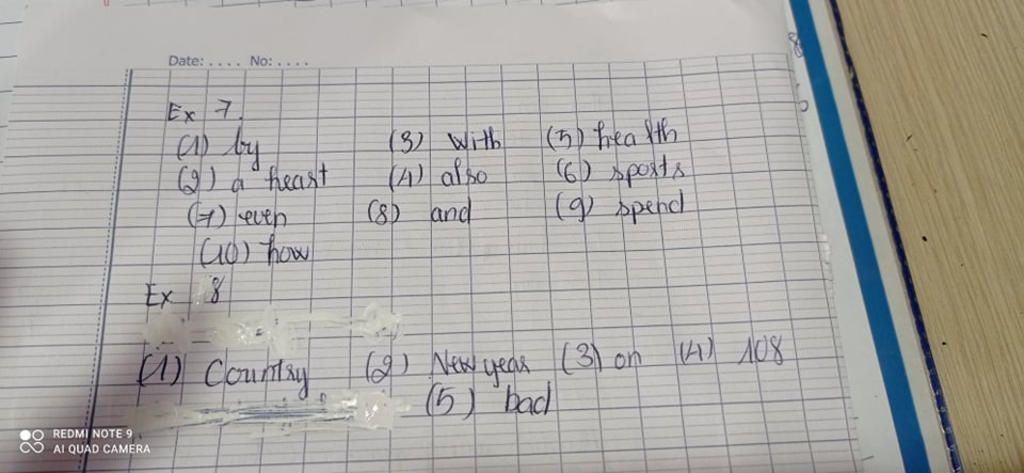 Date: .... No: ....
Ex 7.
(1) by (3) with (5) health
(2) a heart (4) also (6) sports
(7) even (8) and (9) spend
(10) how
Ex 8
(1) Country (2) New year (3) on (4) 108
(5) bad
REDMI NOTE 9
AI QUAD CAMERA